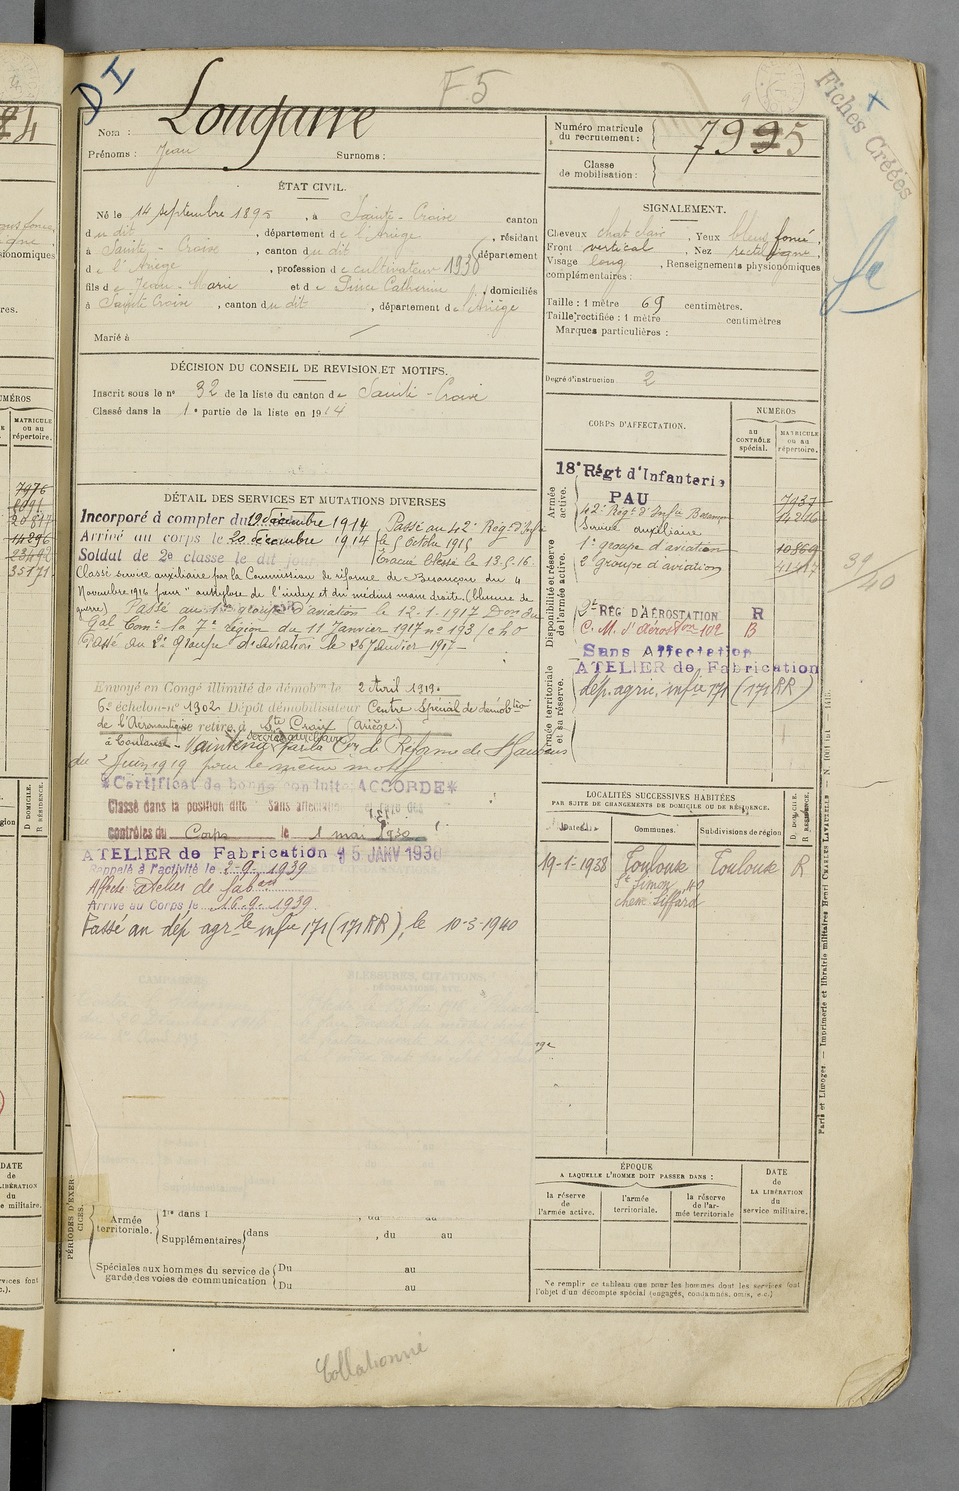 D I
F 5
Fiches Créées
Nom : Lougarre
Prénoms : Jean Surnoms :
Numéro matricule du recrutement : 7995
Classe de mobilisation :
ÉTAT CIVIL.
Né le 14 septembre 1895, à Sainte-Croix canton
du dit, département de l'Ariège, résidant
à Sainte-Croix, canton du dit département
de l'Ariège, profession de cultivateur 1938
fils de Jean-Marie et de Catherine, domiciliés
à Sainte Croix, canton du dit, département de l'Ariège
Marié à
SIGNALEMENT.
Cheveux chat clair, Yeux bleus foncé,
Front vertical, Nez rectiligne,
Visage long, Renseignements physionomiques
complémentaires :
Taille : 1 mètre 69 centimètres.
Taille rectifiée : 1 mètre centimètres
Marques particulières :
Degré d'instruction 2
DÉCISION DU CONSEIL DE REVISION ET MOTIFS.
Inscrit sous le n° 32 de la liste du canton de Sainte-Croix
Classé dans la 1e partie de la liste en 1914
DÉTAIL DES SERVICES ET MUTATIONS DIVERSES
Incorporé à compter du 19 décembre 1914
Arrivé au corps le 20 décembre 1914
Soldat de 2e classe le dit jour
Passé au 42e Régt d'Infie
le 5 Octobre 1915
Évacué blessé le 13.5.16.
Classé service auxiliaire par la Commission de réforme de Besançon du 4
Novembre 1916 pour "ankylose de l'index et du médius main droite. (blessure de
guerre) Passé au 1er groupe d'aviation le 12.1.1917 Don du
Gal Comt la 7e Région du 11 Janvier 1917 n° 193 /
Passé au 2e Groupe d'aviation le 26 Janvier 1917
Envoyé en Congé illimité de démobon le 2 Avril 1919.
6e échelon-n° 1902 Dépôt démobilisateur Centre Spécial de démobon
de l'Aéronautique se retire à Ste Croix (Ariège)
à Toulouse - Maintenu service auxiliaire par la Con de Réforme de St Gaudens
du 2 Juin 1919 pour le même motif
*Certificat de bonne conduite ACCORDE*
Classé dans la position dite Sans affectation
contrôles du Corps le 1 mai 1930
ATELIER de Fabrication 15 JANV 1938
Rappelé à l'activité le 2-9-1939
Affecté atelier de fabon
Arrivé au Corps le 16.9.1939
Passé au dép agrle infie 171 (171 RR), le 10-3-1940
CORPS D'AFFECTATION.
NUMÉROS
au CONTRÔLE spécial.
MATRICULE ou au répertoire.
Armée active.
Disponibilité et réserve de l'armée active.
Armée territoriale et sa réserve.
18e Régt d'Infanterie
PAU 7937
42e Régt d'Infie Besançon
Service auxiliaire
1er groupe d'aviation 10869
2e groupe d'aviation
RÉG D'AÉROSTATION R
C. M. d'Aéroston 102 B
Sans Affectation
ATELIER de Fabrication
dép. agric. infie 171 (171 RR)
39/40
LOCALITÉS SUCCESSIVES HABITÉES
PAR SUITE DE CHANGEMENTS DE DOMICILE OU DE RÉSIDENCE.
Dates. Communes. Subdivisions de région D. DOMICILE. R. RÉSIDENCE.
19-1-1938 Toulouse Toulouse R
St Simon 40
chem. Liffard
CAMPAGNES.
BLESSURES, CITATIONS, DÉCORATIONS, ETC.
PÉRIODES D'EXERCICES.
Armée territoriale.
1re dans l , du au
Supplémentaires dans , du au
Spéciales aux hommes du service de garde des voies de communication
Du au
Du au
ÉPOQUE
A LAQUELLE L'HOMME DOIT PASSER DANS :
la réserve de l'armée active.
l'armée territoriale.
la réserve de l'armée territoriale
DATE de LA LIBÉRATION du service militaire.
Ne remplir ce tableau que pour les hommes dont les services font
l'objet d'un décompte spécial (engagés, condamnés, omis, e.c.)
Paris et Limoges. — Imprimerie et librairie militaires Henri CHARLES-LAVAUZELLE
Collationné